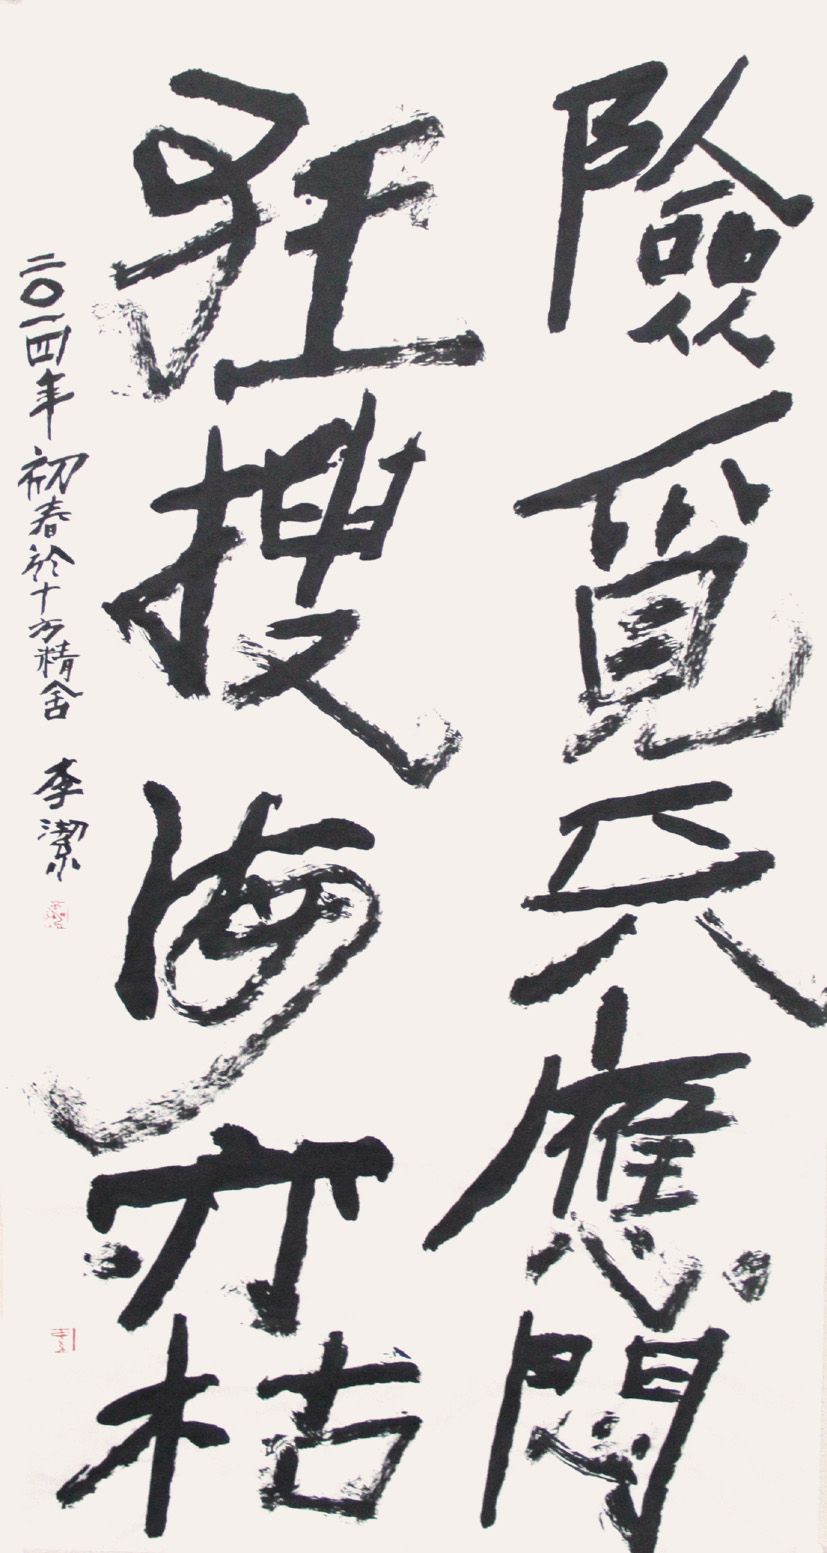 險覓天應悶
狂搜海亦枯
二〇一四年初春於十方精舍 李潔